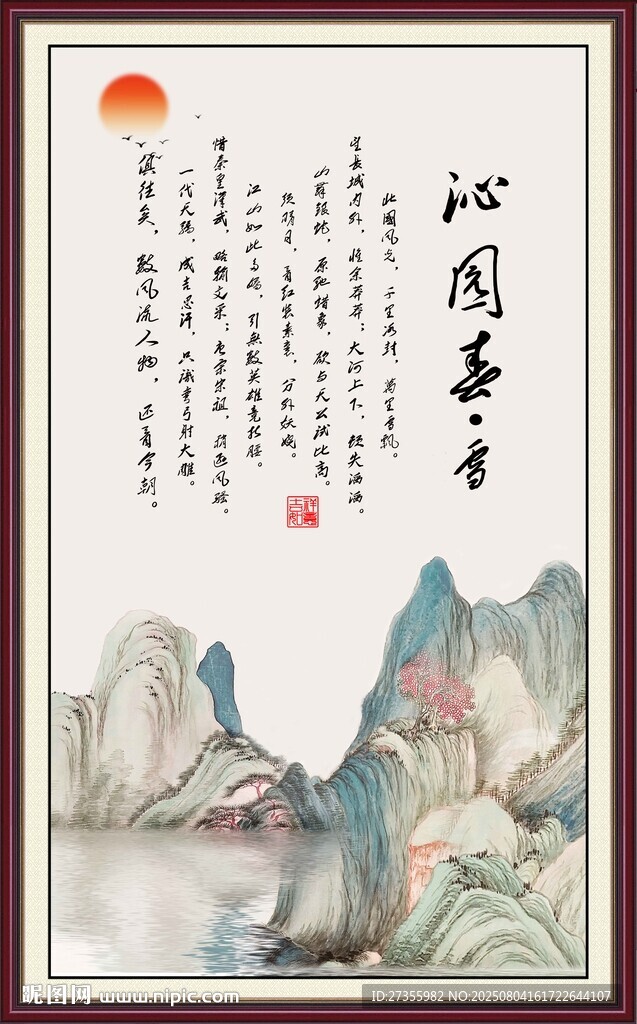 沁园春·雪
此國风光，千里冰封，萬里雪飘。
望長城内外，惟余莽莽；大河上下，顿失滔滔。
山舞银蛇，原驰蜡象，欲与天公试比高。
须晴日，看红装素裹，分外妖娆。
江山如此多娇，引無数英雄竞折腰。
惜秦皇漢武，略输文采；唐宗宋祖，稍逊风骚。
一代天骄，成吉思汗，只識弯弓射大雕。
俱往矣，数风流人物，还看今朝。
吉祥如意
昵图网 www.nipic.com
ID:27355982 NO:20250804161722644107